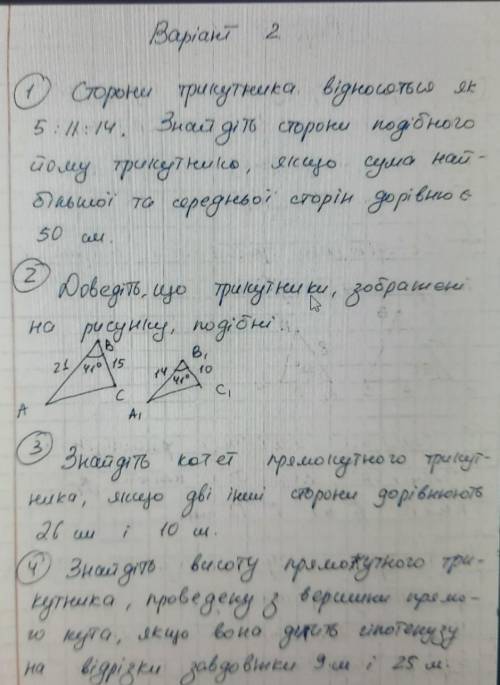 Варіант 2
① Сторони трикутника відносяться як
5:11:14. Знайдіть сторони подібного
йому трикутника, якщо сума най-
більшої та середньої сторін дорівнює
50 см.
② Доведіть, що трикутники, зображені
на рисунку, подібні.
B B₁
21 41° 15 14 41° 10
A C A₁ C₁
③ Знайдіть катет прямокутного трикут-
ника, якщо дві інші сторони дорівнюють
26 см і 10 см.
④ Знайдіть висоту прямокутного три-
кутника, проведену з вершини прямо-
го кута, якщо вона ділить гіпотенузу
на відрізки завдовжки 9 м і 25 м.